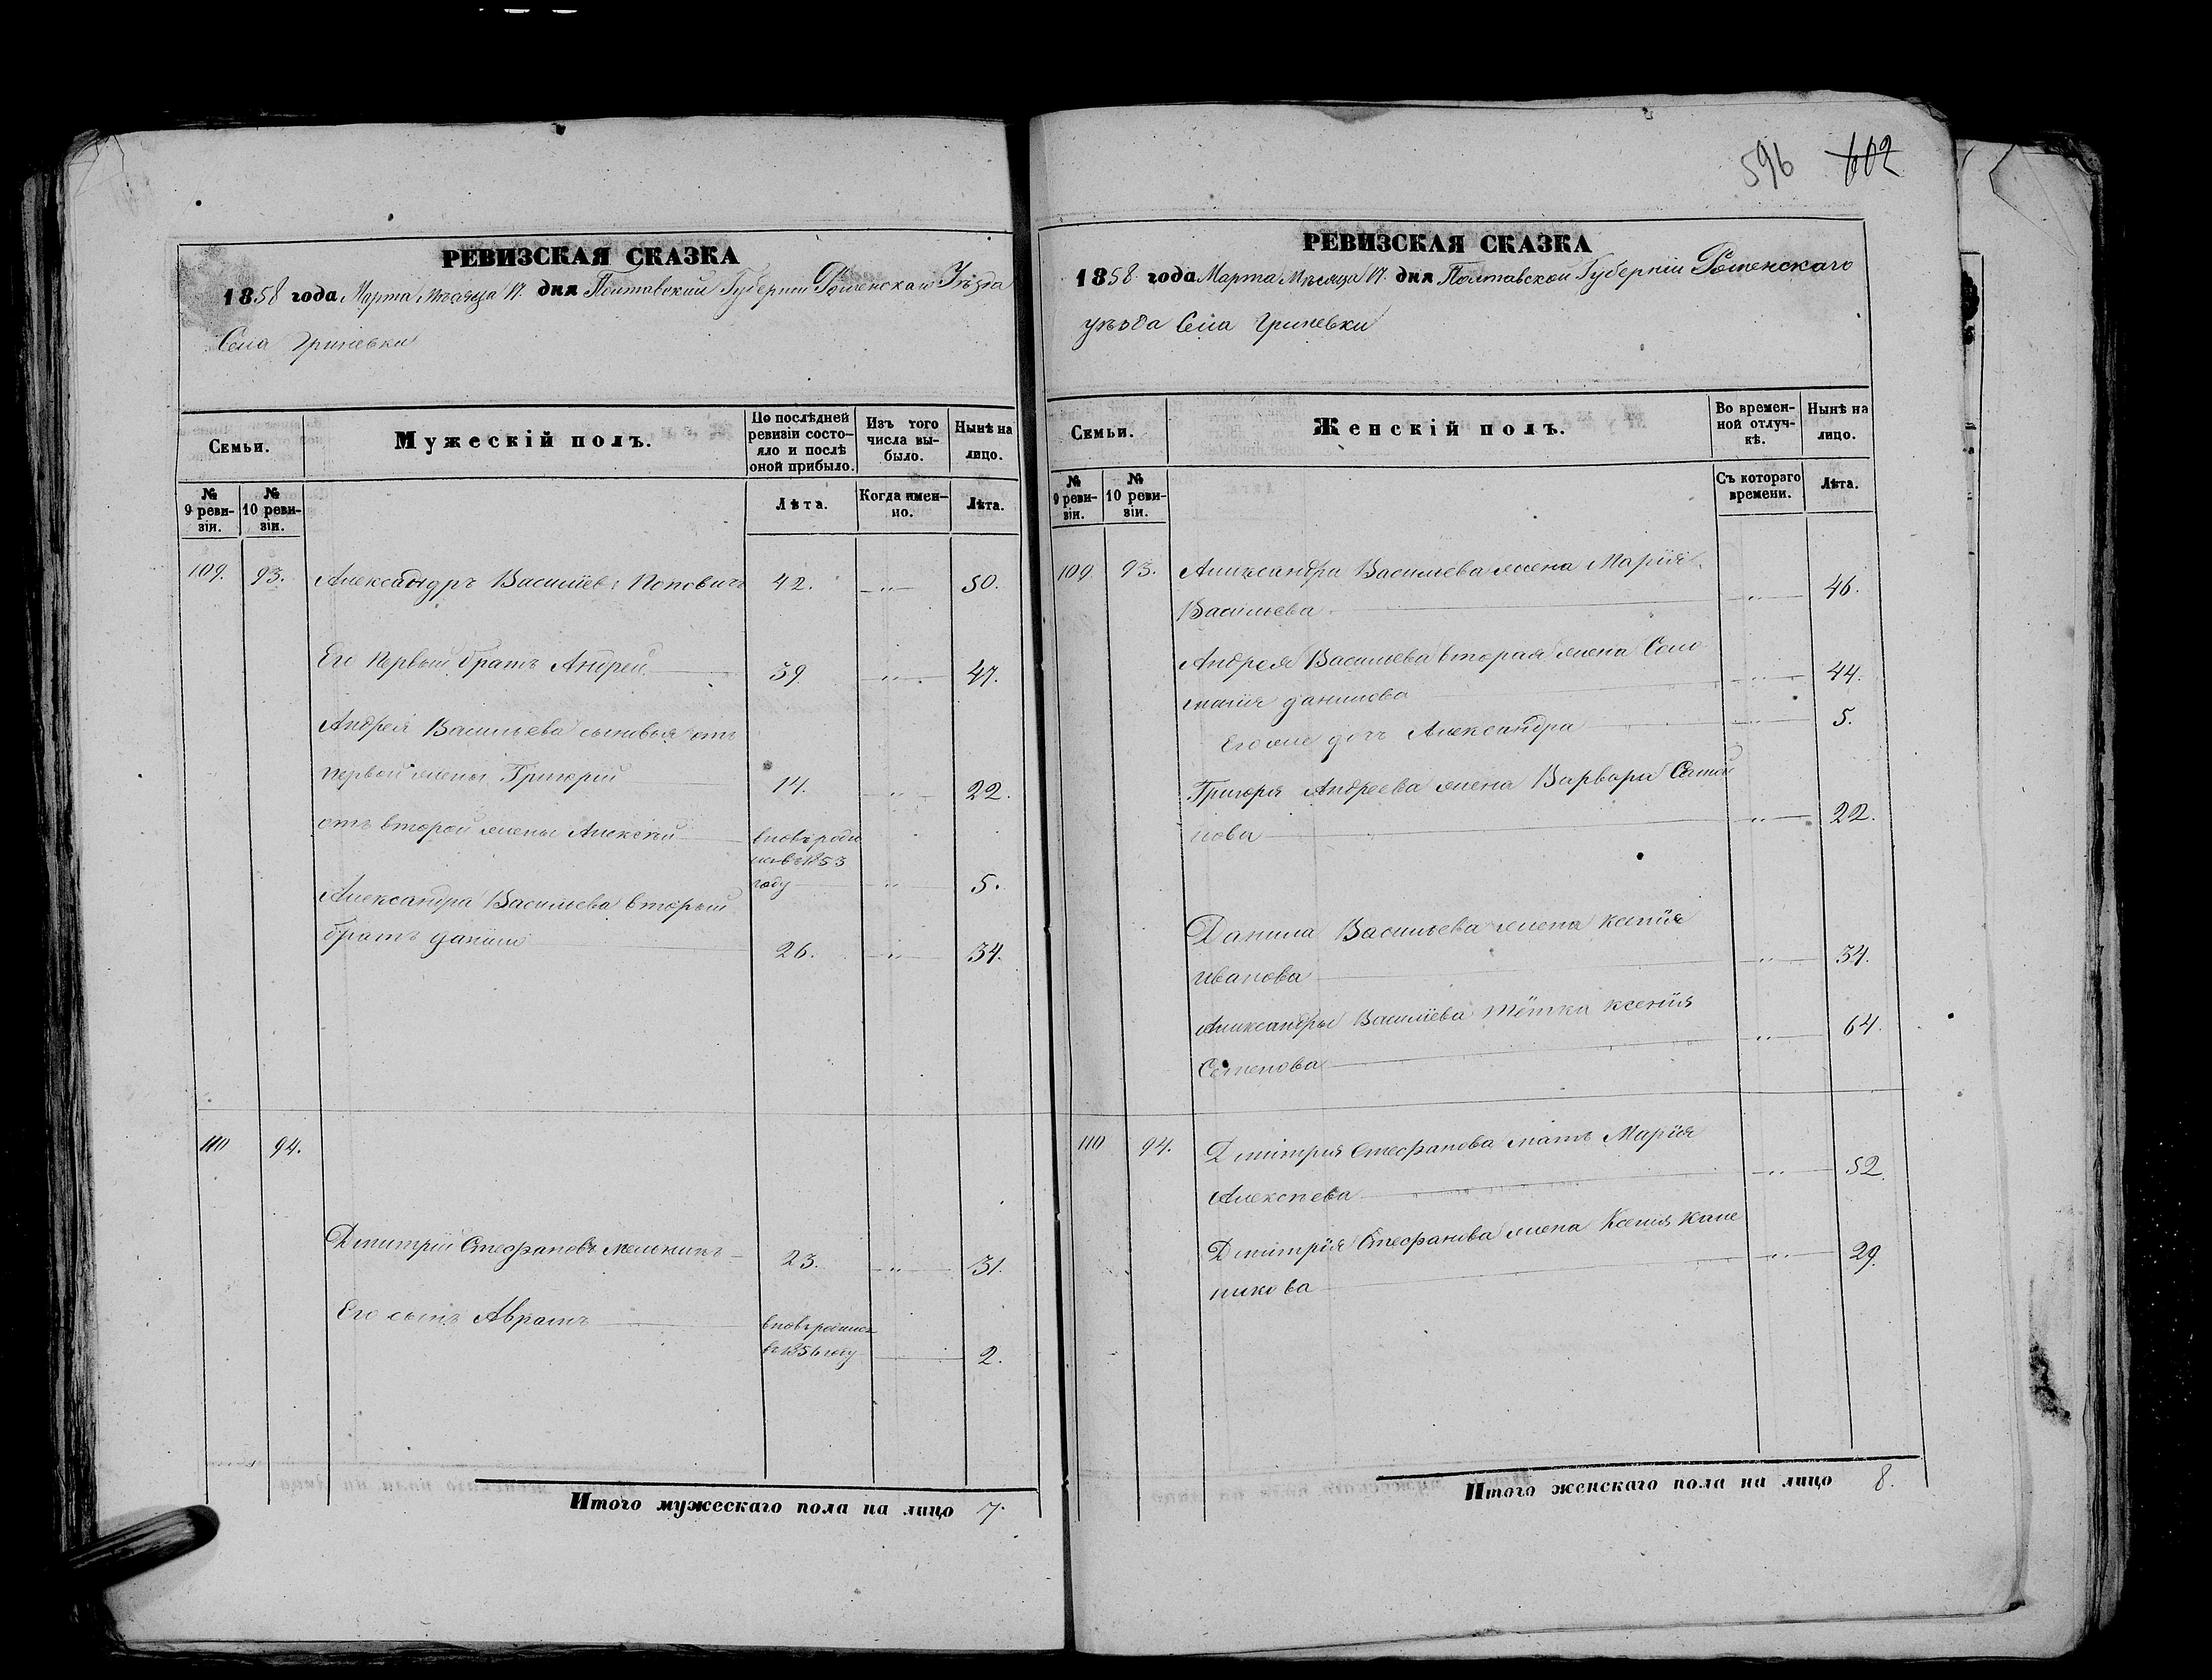 596 602
РЕВИЗСКАЯ СКАЗКА
1858 года Марта Мѣсяца 17. дня Полтавской Губерніи Роменскаго Уѣзда
Села Гриневки
Семьи.
Мужескій полъ.
По послѣдней
ревизіи состо-
яло и послѣ
оной прибыло.
Изъ того
числа вы-
было.
Нынѣ на
лицо.
№
9 реви-
зіи.
№
10 реви-
зіи.
Лѣта.
Когда имен-
но.
Лѣта.
109. 93. Александръ Василіевъ Поповичъ 42. — " — 50.
Его первый братъ Андрей 39 — " — 47.
Андрея Васильева сыновья отъ
первой жены Григорій 14. — " — 22.
отъ второй жены Алексѣй вновь роди
лся въ 1853
году — " — 5.
Александра Васильева вторый
братъ Данило 26. — " — 34.
110 94.
Дмитрій Стефановъ Мельникъ 23. — " — 31.
Его сынъ Аврамъ вновь родился
въ 1856 году — 2.
Итого мужескаго пола на лицо 7.
РЕВИЗСКАЯ СКАЗКА
1858 года Марта Мѣсяца 17. дня Полтавской Губерніи Роменскаго
уѣзда Села Гриневки
Семьи.
Женскій полъ.
Во времен-
ной отлуч-
кѣ.
Нынѣ на
лицо.
№
9 реви-
зіи.
№
10 реви-
зіи.
Съ котораго
времени.
Лѣта.
109 93. Александра Васильева жена Марія
Васильева — " — 46.
Андрея Васильева вторая жена Соло
манія Данилова — " — 44.
Его же дочь Александра — " — 5.
Григорія Андреева жена Варвара
нова — " — 22.
Данила Васильева жена Ксенія
Иванова — " — 34.
Александры Василіева тётка Ксенія
Семенова — " — 64.
110 94. Дмитрия Стефанова мать Марія
Алексѣева — " — 52.
Дмитрія Стефанова жена Ксенія Кале
никова — " — 29.
Итого женскаго пола на лицо 8.